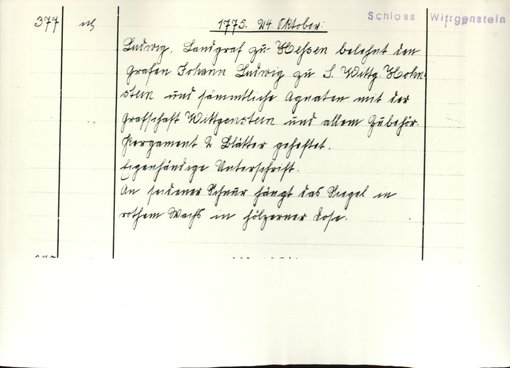 Schloss Wittgenstein
377 1775. 24. Oktober.
Ludwig, Landgraf zu Hessen belehnt den
Grafen Johann Ludwig zu S. Wittg. Hohn-
stein und sämmtliche Agnaten mit der
Grafschaft Wittgenstein und allem Zubehör.
Pergament 2 Blätter geheftet.
Eigenhändige Unterschrift.
An seidener Schnur hängt das Siegel in
rothem Wachs in hölzerner Dose.